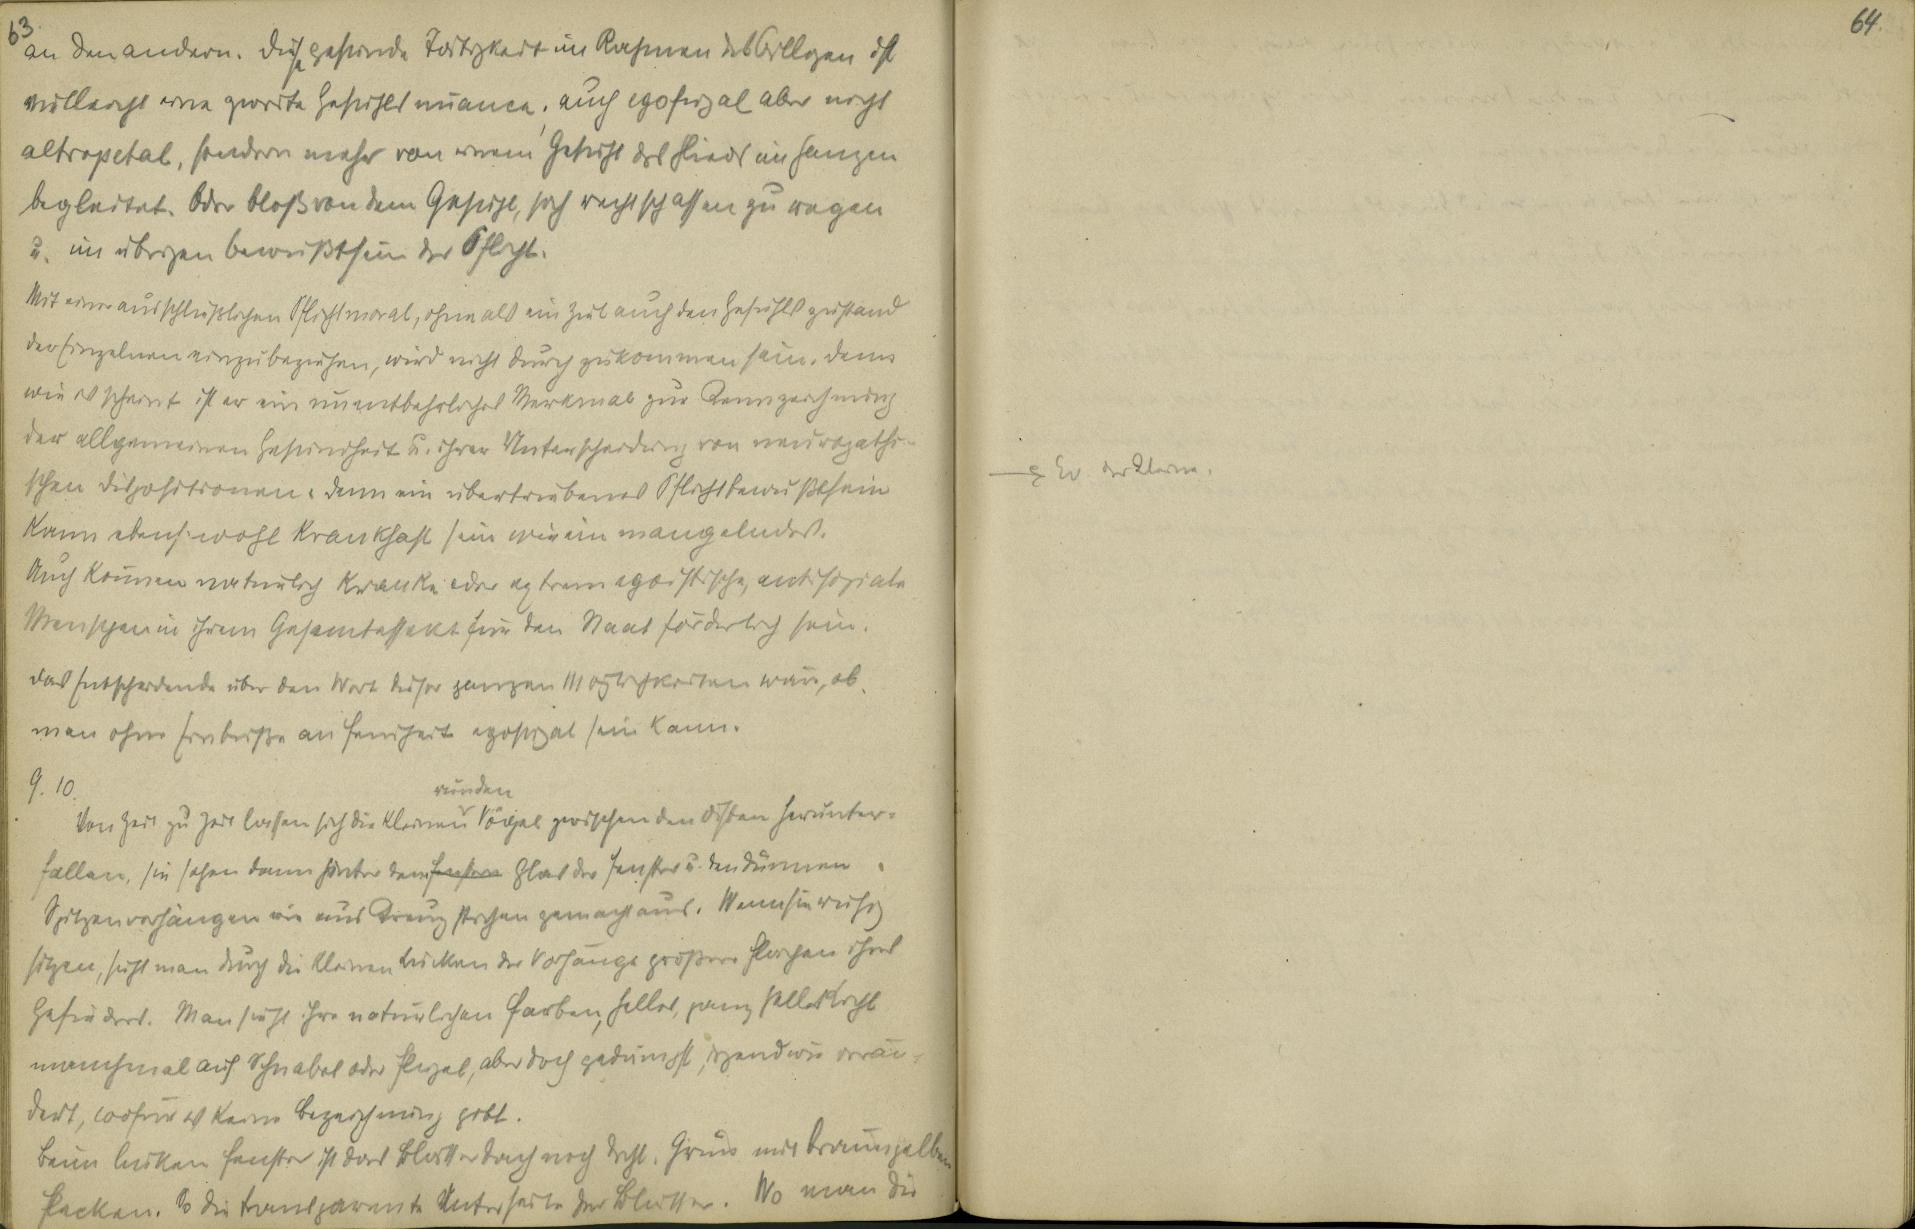 63
an den andern. Diese gesunde Tätigkeit im Rahmen des Allgen ist
vielleicht eine zweite Gefühlsnuance, auch egofugal aber nicht
altropetal, sondern mehr von einem Gefühl des Glieds im Ganzen
begleitet. Oder bloß von dem Gefühl, sich rechtschaffen zu regen
u. im übrigen Bewußtsein der Pflicht.
Mit einer ausschließlichen Pflichtmoral, ohne als ein Ziel auch den Gefühlszustand
der Einzelnen einzubeziehen, wird nicht durchzukommen sein. Denn
wie es scheint ist er ein unentbehrliches Merkmal zur Kennzeichnung
der allgemeinen Gesundheit u. ihrer Unterscheidung von neuropathi-
schen Dispositionen. Denn ein übertriebenes Pflichtbewußtsein
kann ebensowohl krankhaft sein wie ein mangelndes.
Auch können natürlich Kranke oder extrem egoistische, antisoziale
Menschen in ihrem Gesamteffekt für den Staat förderlich sein.
Das Entscheidende über den Wert dieser ganzen Möglichkeiten wäre, ob
man ohne Einbuße an Feinheit egofugal sein kann.
9. 10.
runden
Von Zeit zu Zeit lassen sich die kleinen Vögel zwischen den Ästen herunter-
fallen, sie sehen dann hinter dem Glas der Fenster u. den dünnen
Spitzenvorhängen wie aus Kreuzstichen gemacht aus. Wenn sie ruhig
sitzen, sieht man durch die kleinen Lücken der Vorhänge größere Flächen ihres
Gefieders. Man sieht ihre natürlichen Farben, helles, ganz helles Licht
manchmal auf Schnabel oder Flügel, aber doch gedämpft, irgendwie verän-
dert, wofür es keine Bezeichnung gibt.
Beim linken Fenster ist das Blätterdach noch dicht. Grün mit braungelben
Flecken. So die transparente Unterseite der Blätter. Wo man die
64.
der Kleine.